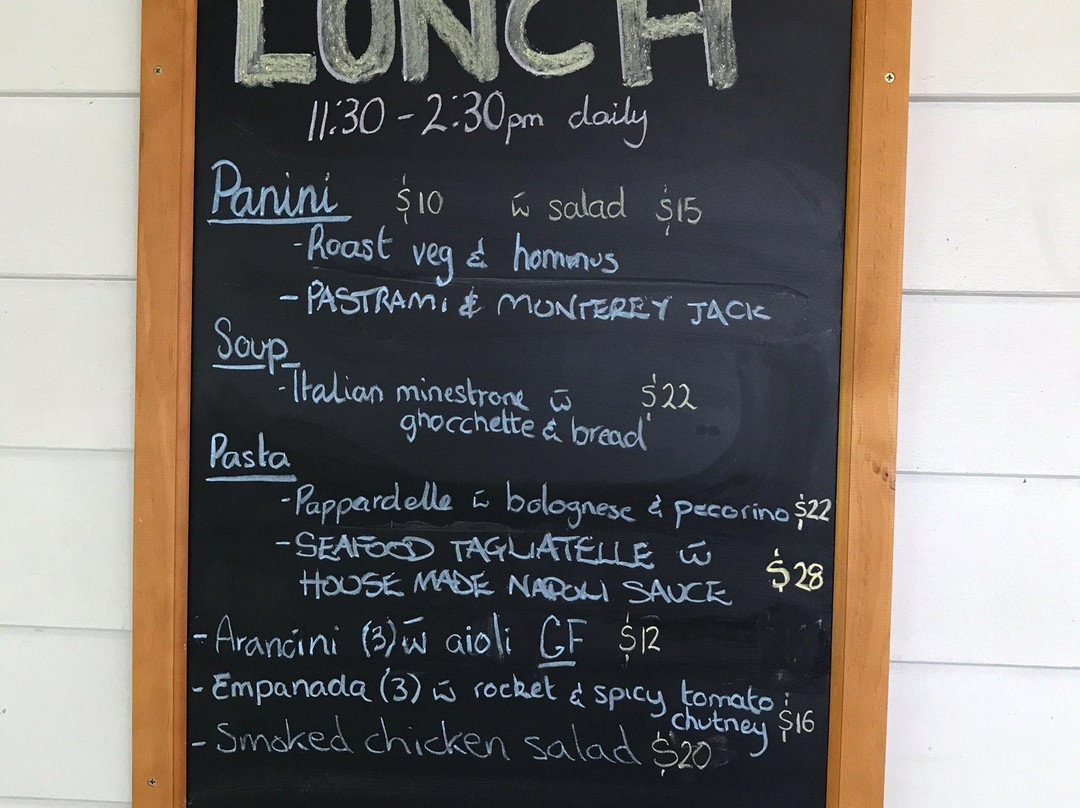 LUNCH
11:30 - 2:30pm daily
Panini $10 w̄ salad $15
- Roast veg & hommus
- PASTRAMI & MONTEREY JACK
Soup
- Italian minestrone w̄ $22
gnocchette & bread
Pasta
- Pappardelle w̄ bolognese & pecorino $22
- SEAFOOD TAGLIATELLE w̄
HOUSE MADE NAPOLI SAUCE $28
- Arancini (3) w̄ aioli GF $12
- Empanada (3) w̄ rocket & spicy tomato
chutney $16
- Smoked chicken salad $20